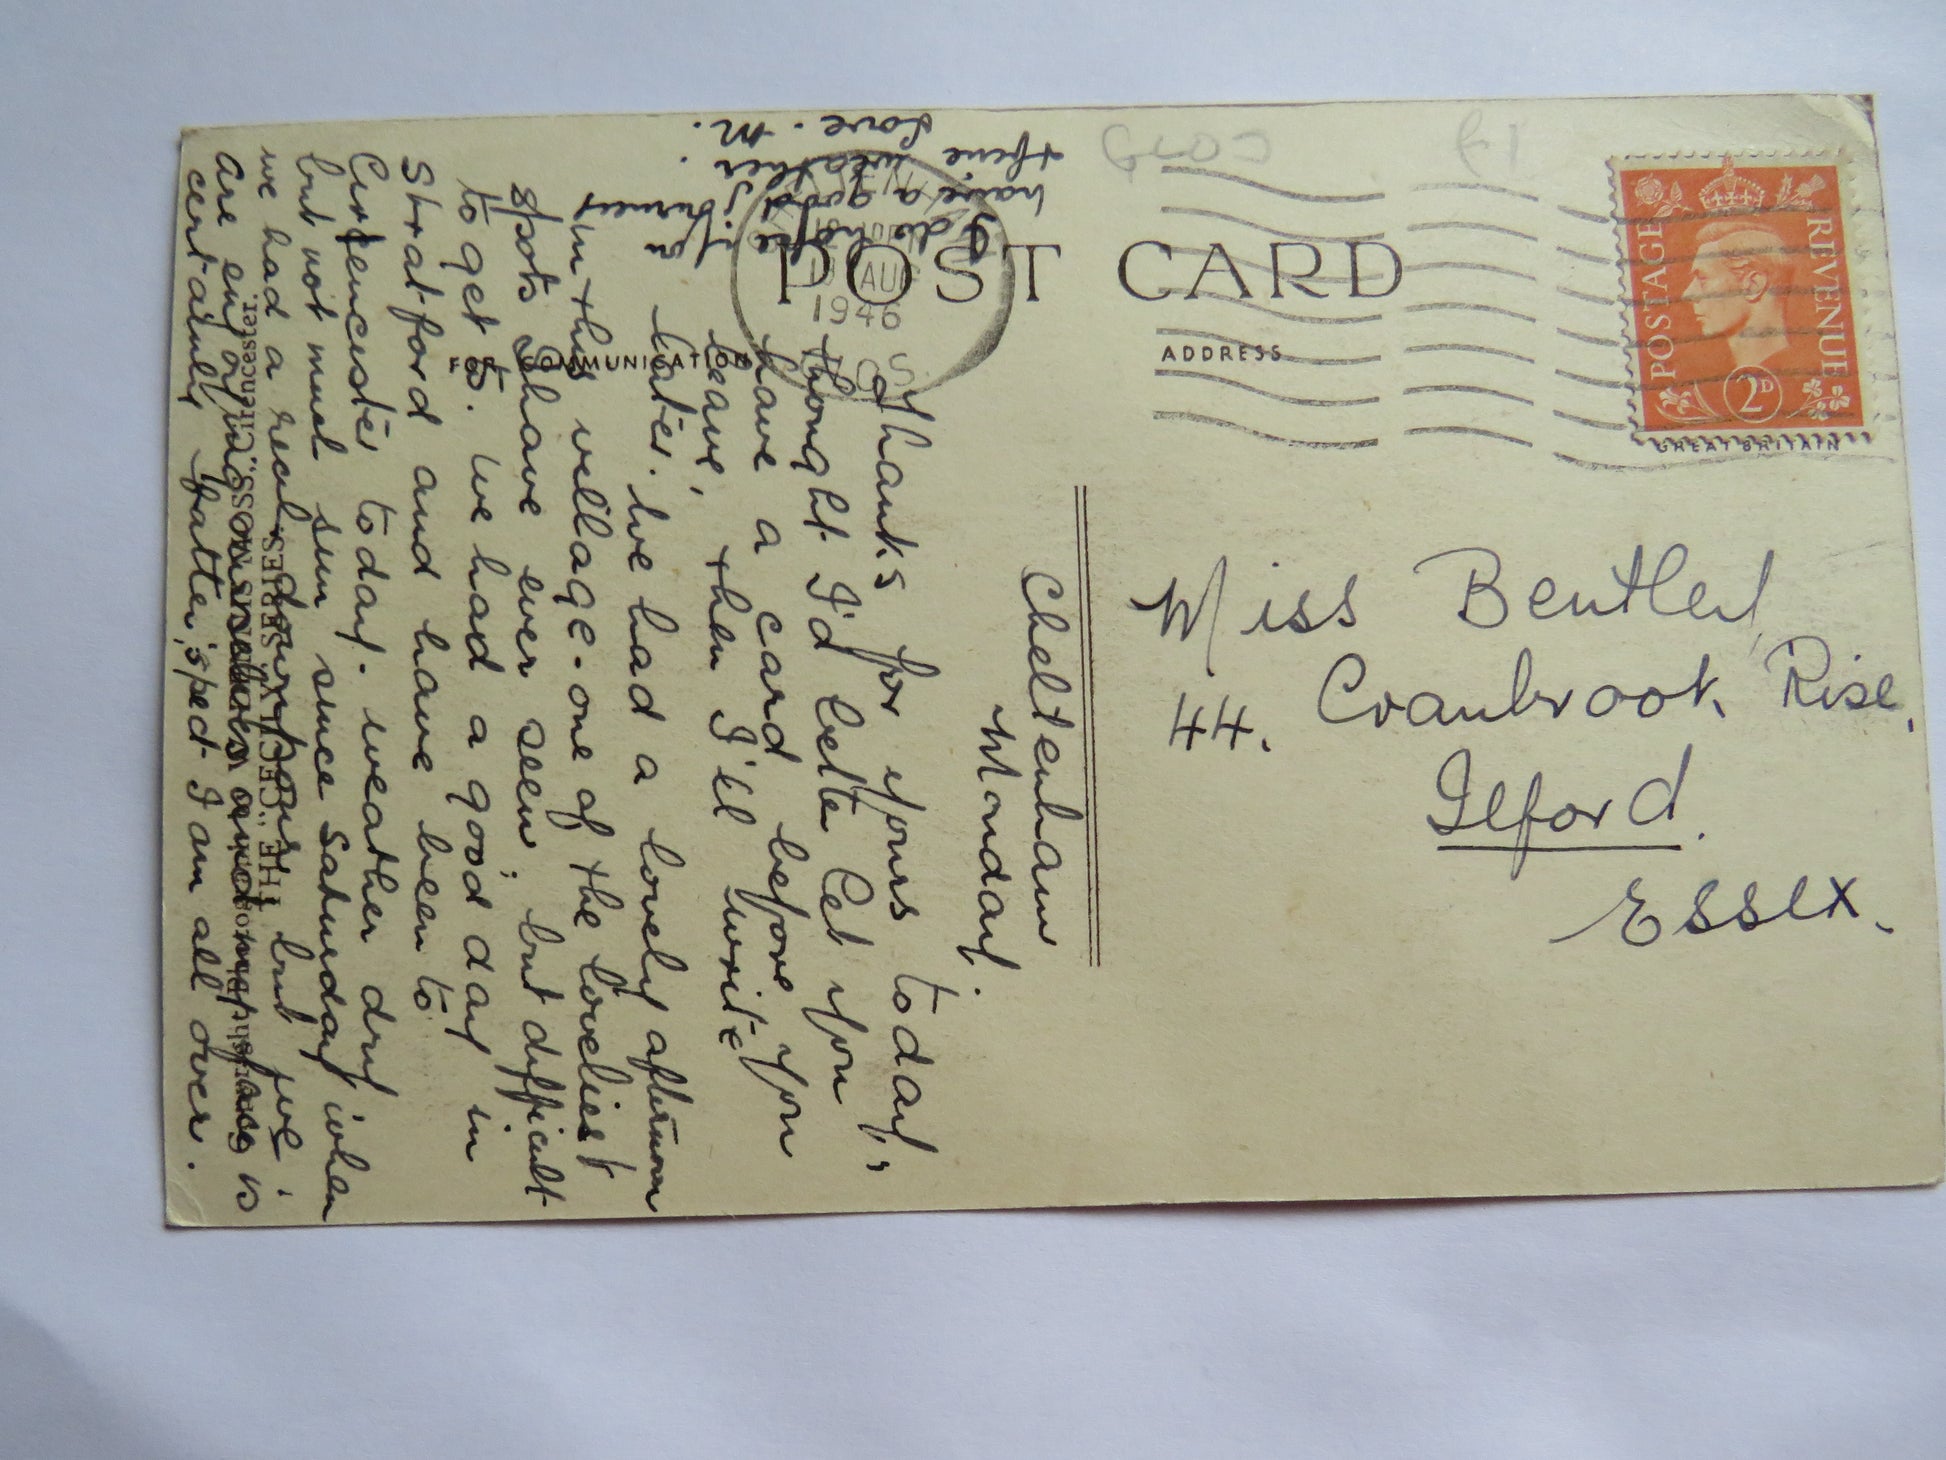 POST CARD
FOR COMMUNICATION
ADDRESS
POSTAGE REVENUE
2D
GREAT BRITAIN
AUG
1946
Miss Bentley
44. Cranbrook Rise,
Ilford.
Essex.
Cheltenham
Monday.
Thanks for yours today,
thought I'd better let you
have a card before you
leave, then I'll write
later. We had a lovely afternoon
in this village - one of the loveliest
spots I have ever seen, but difficult
to get to. We had a good day in
Stratford and have been to
Cirencester today. weather dry
but not much sun since Saturday when
we had a real downpour but we
are enjoying ourselves and my face is
certainly fatter, 'spect I am all over.
I do hope you
have a good journey
+ fine weather.
Love. M.
THE "CECILY" SERIES
Cirencester.